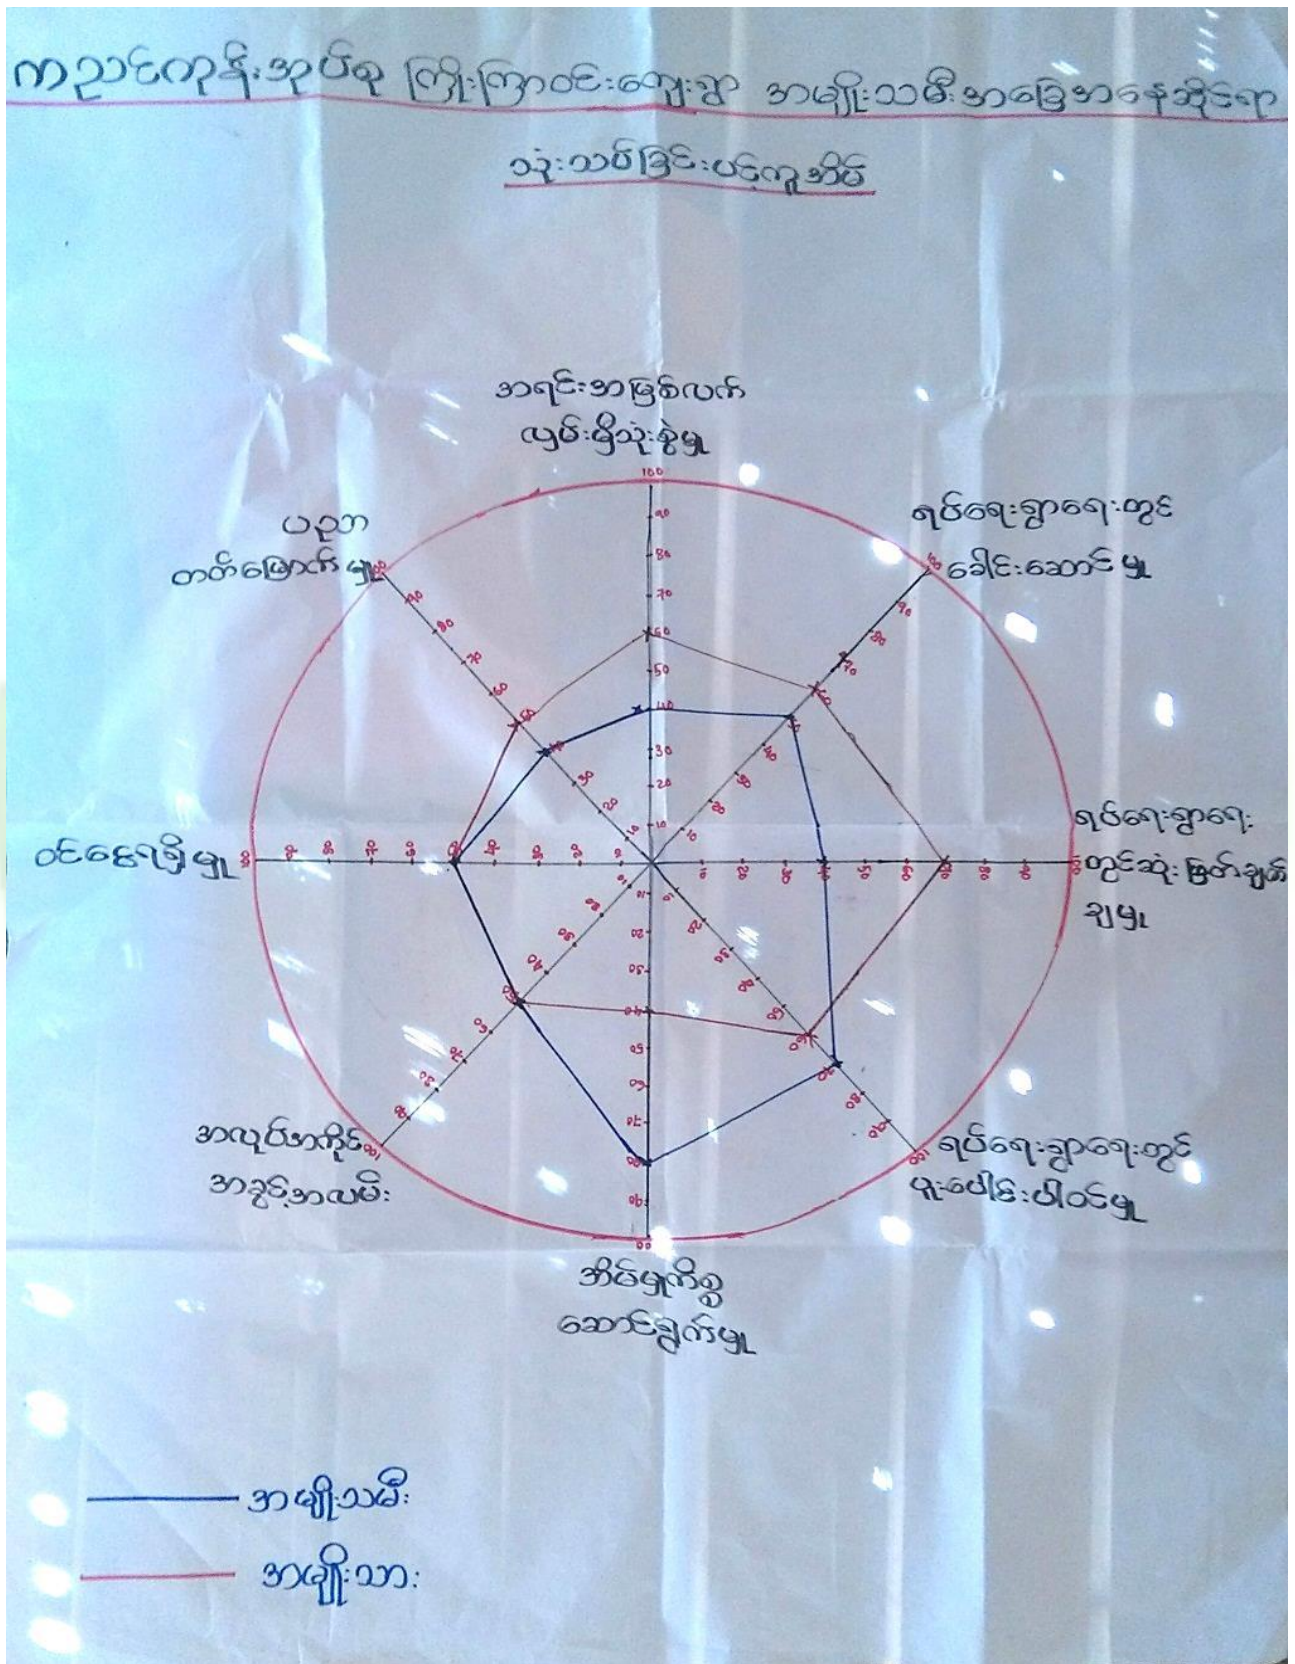 ကညင်ကုန်းအုပ်စု ကြိုးကြာဝင်းကျေးရွာ အမျိုးသမီးအခြေအနေဆိုင်ရာ
သုံးသပ်ခြင်းပင့်ကူအိမ်
အရင်းအမြစ်လက်
လှမ်းမှီသုံးစွဲမှု
ရပ်ရေးရွာရေးတွင်
ခေါင်းဆောင်မှု
ရပ်ရေးရွာရေး
တွင်ဆုံးဖြတ်ချက်
ချမှု
ရပ်ရေးရွာရေးတွင်
ပူးပေါင်းပါဝင်မှု
အိမ်မှုကိစ္စ
ဆောင်ရွက်မှု
အလုပ်အကိုင်
အခွင့်အလမ်း
ဝင်ငွေရရှိမှု
ပညာ
တတ်မြောက်မှု
100
90
80
70
60
50
40
30
20
10
အမျိုးသမီး
အမျိုးသား